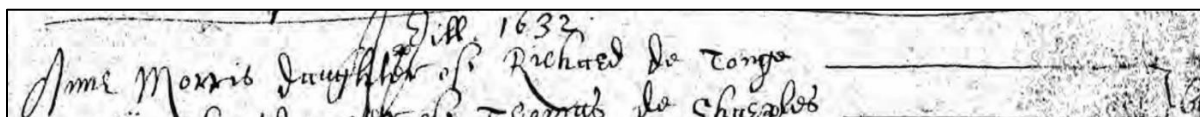 Jill. 1632
Anne Morris daughter of Richard de Tonge
Thomas de Sharples